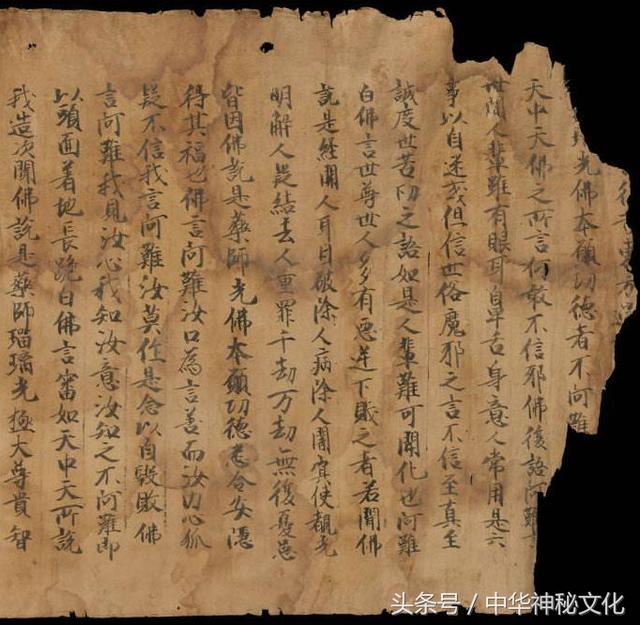 光佛本願功德者不阿難
天中天佛之所言何敢不信邪佛復語阿難
世間人輩雖有眼耳鼻舌身意人常用是六
事以自迷或但信世俗魔邪之言不信至真至
誠度世苦切之語如是人輩難可開化也阿難
白佛言世尊世人多有惡逆下賤之者若聞佛
說是經開人耳目破除人病除人闇冥使覩光
明解人疑結去人重罪千劫万劫無復憂患
皆因佛說是藥師光佛本願功德悉令安隱
得其福也佛言阿難汝口為言善而汝內心狐
疑不信我言阿難汝莫作是念以自毀敗佛
言阿難我見汝心我知汝意汝知之不阿難即
以頭面着地長跪白佛言審如天中天所說
我造次聞佛說是藥師瑠璃光極大尊貴智
头条号／中华神秘文化